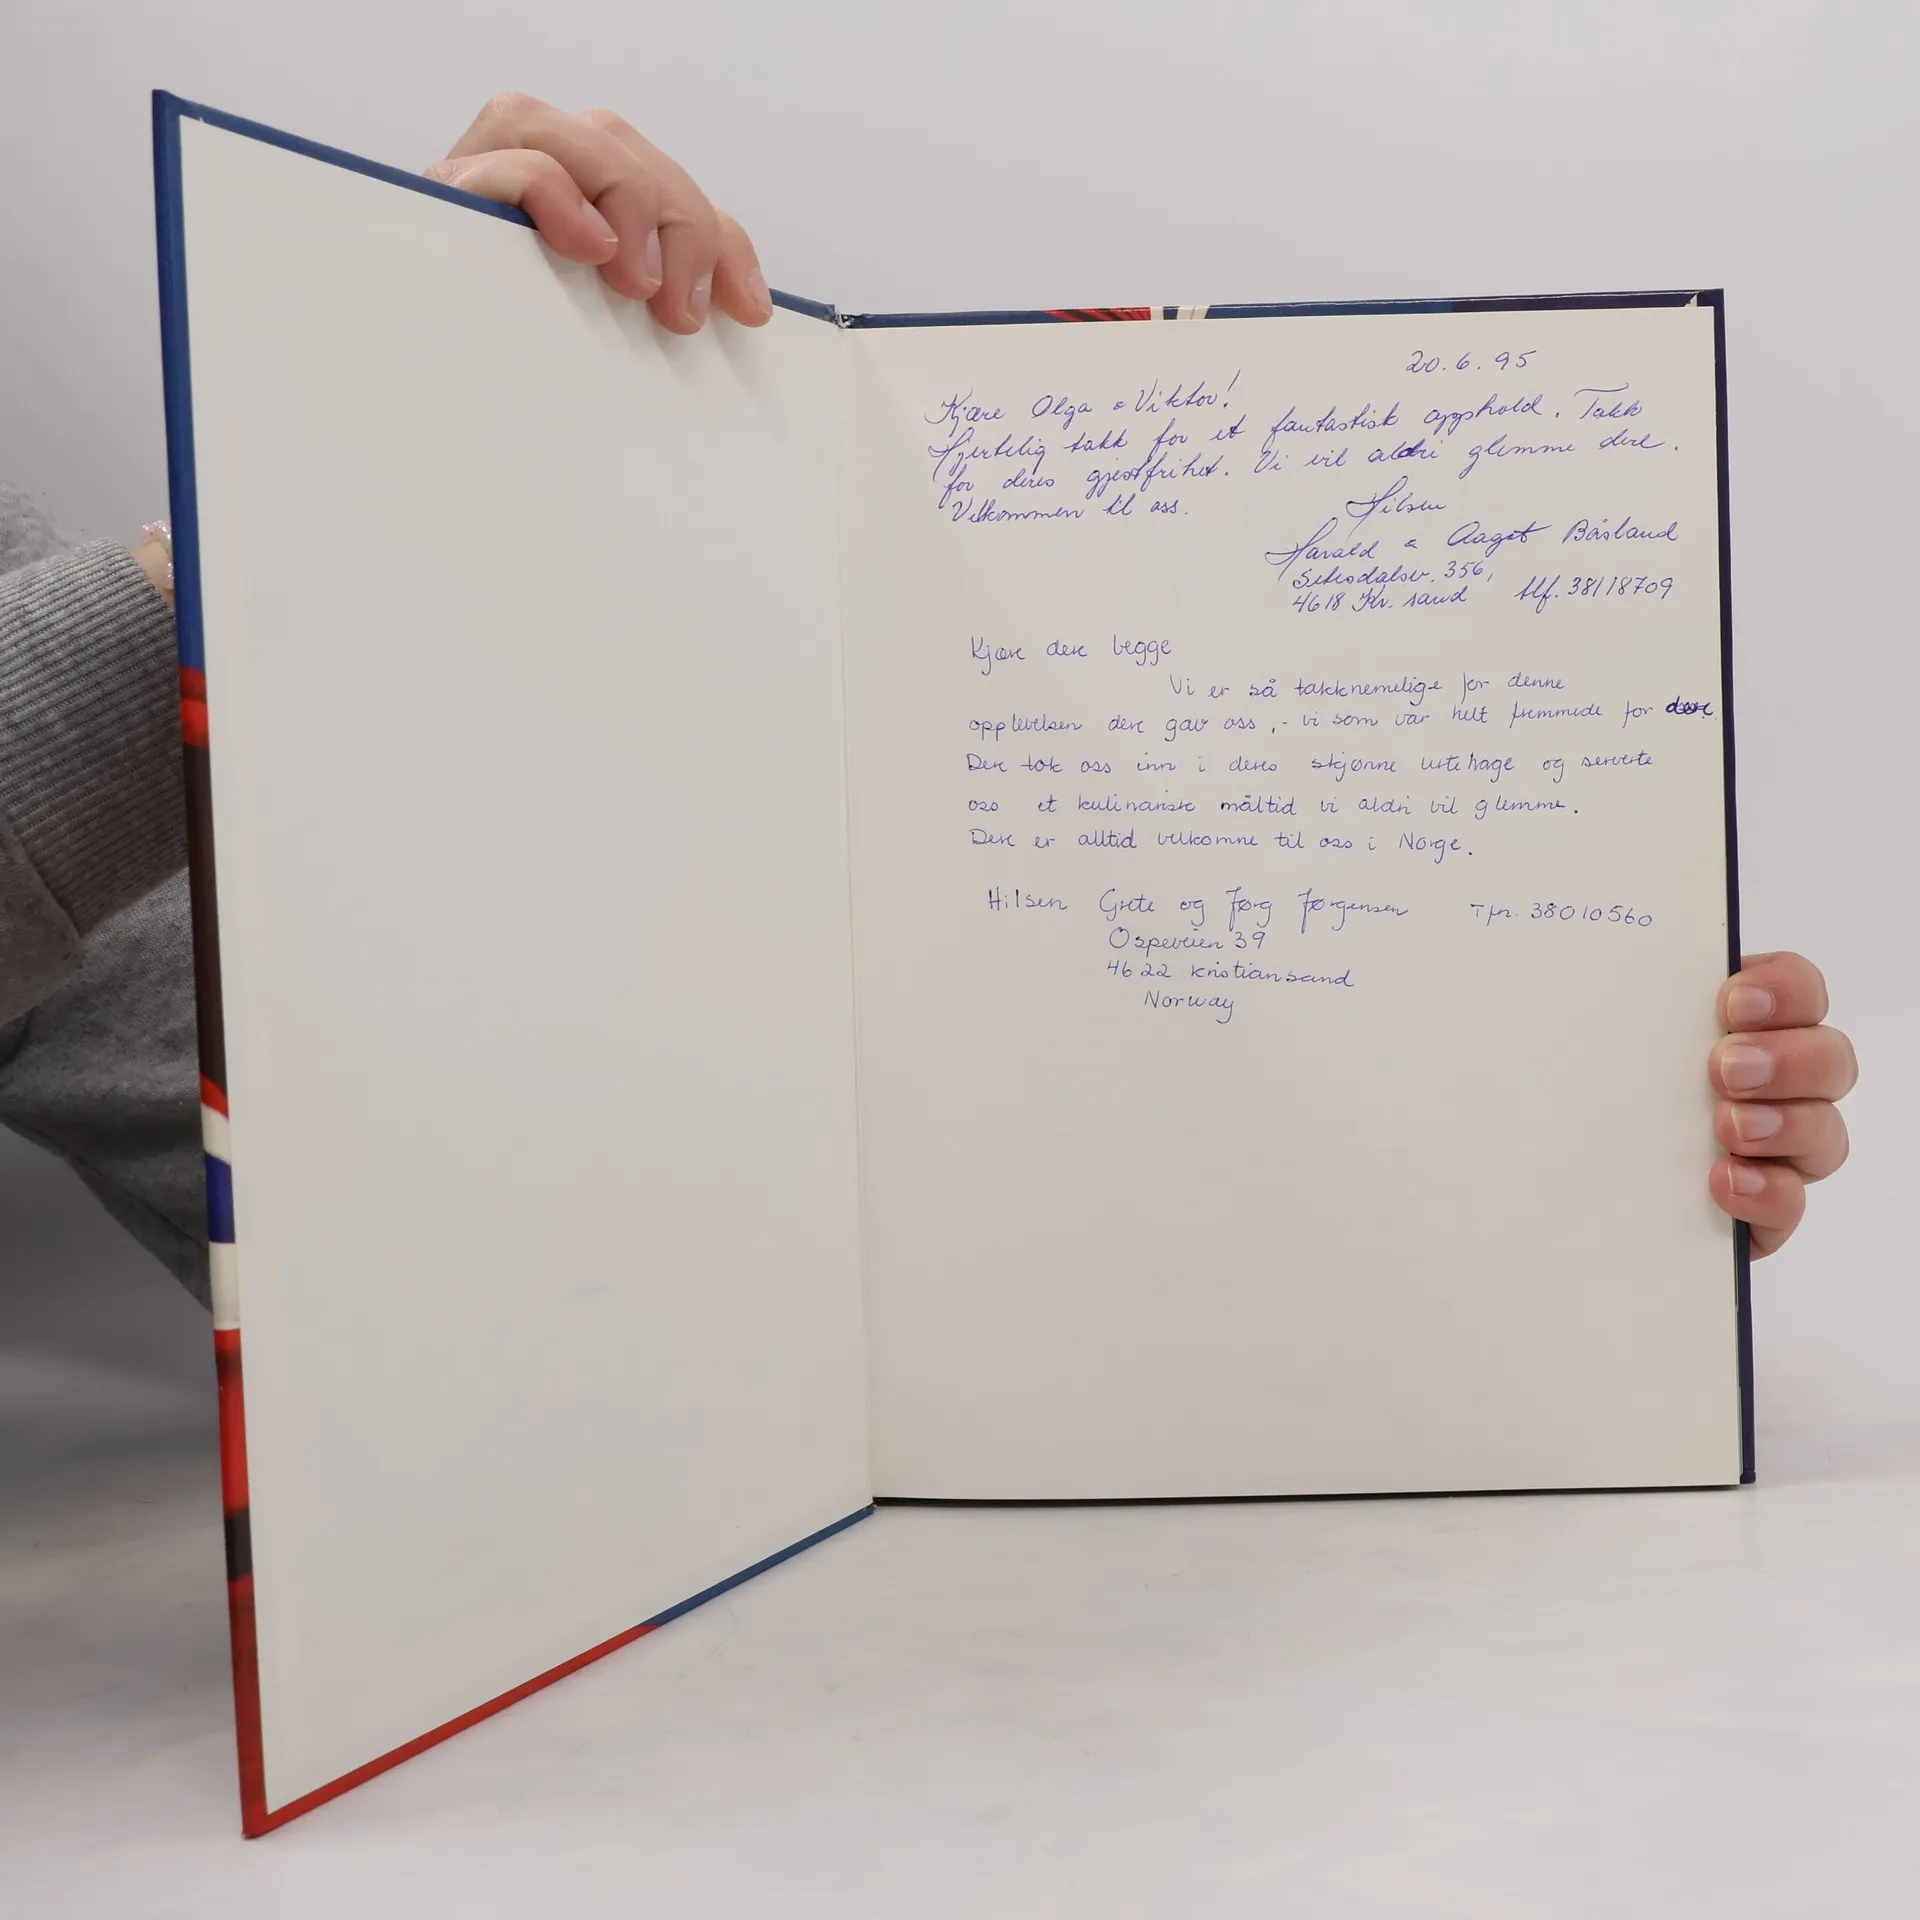 20.6.95
Kjære Olga & Viktor!
Hjertelig takk for et fantastisk opphold. Takk
for deres gjestfrihet. Vi vil aldri glemme dere.
Velkommen til oss.
Hilsen
Harald & Aagot Båsland
Setesdalsv. 356,
4618 Kr. sand tlf. 38118709
Kjære dere begge
Vi er så takknemelige for denne
opplevelsen dere gav oss,- vi som var helt fremmede for dere.
Dere tok oss inn i deres skjønne urtehage og serverte
oss et kulinarisk måltid vi aldri vil glemme.
Dere er alltid velkomne til oss i Norge.
Hilsen Grete og Jørg Jørgensen Tfn. 38010560
Ospeveien 39
4622 Kristiansand
Norway